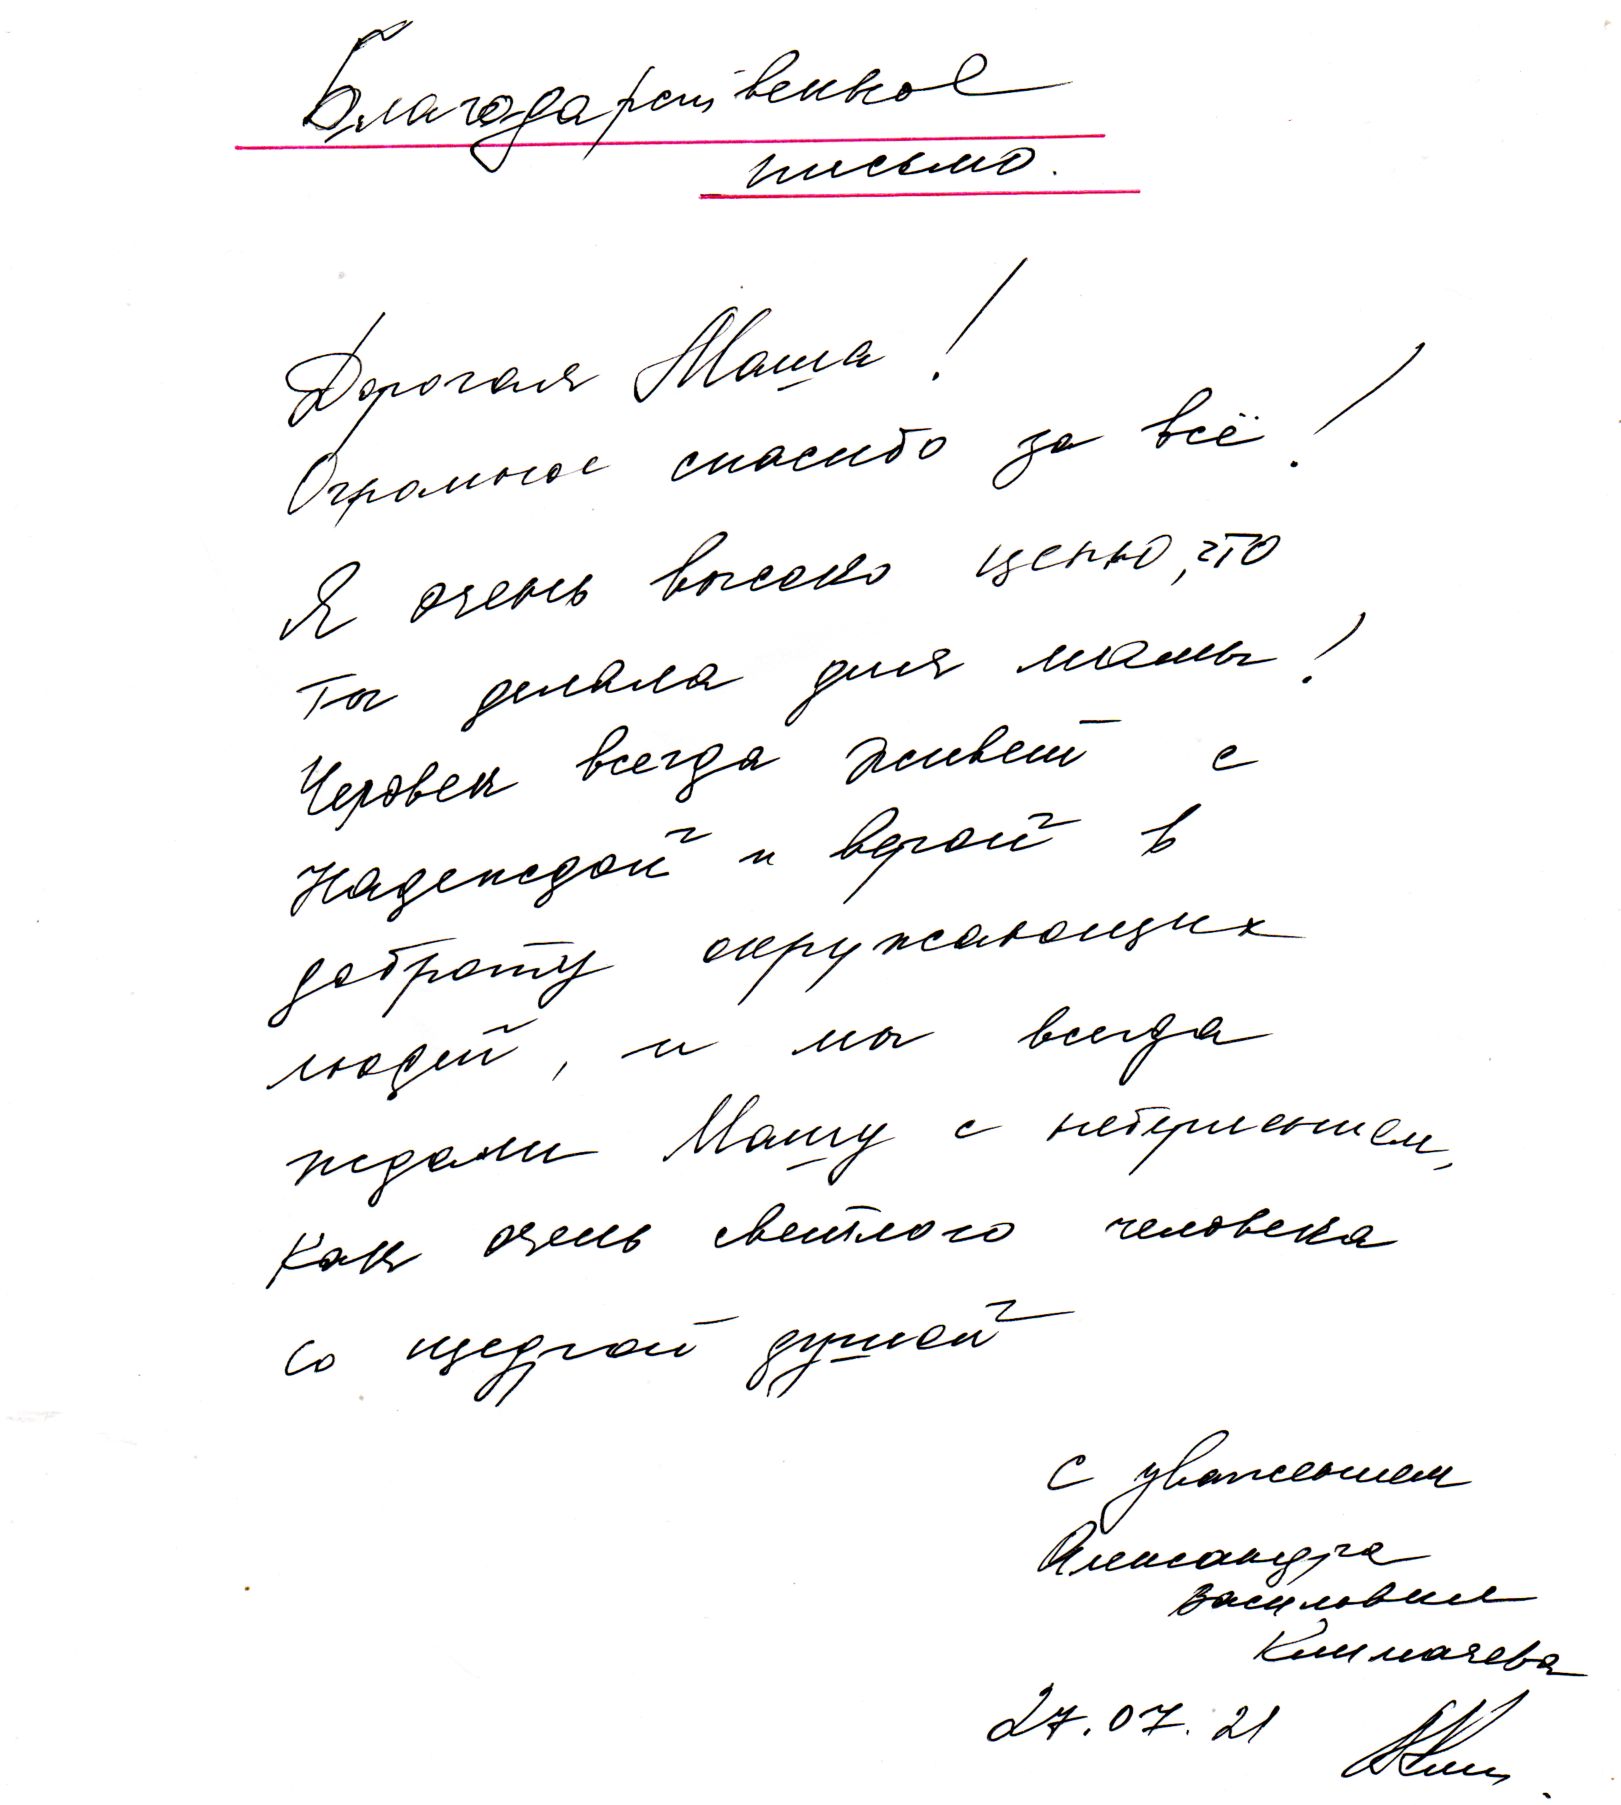 Благодарственное
письмо.
Дорогая Маша!
Огромное спасибо за всё!
Я очень высоко ценю, что
ты делала для мамы!
Человек всегда живет с
надеждой и верой в
доброту окружающих
людей, и мы всегда
ждали Машу с нетерпением,
как очень светлого человека
со щедрой душой
С уважением
Александра
Васильевна
27.07.21